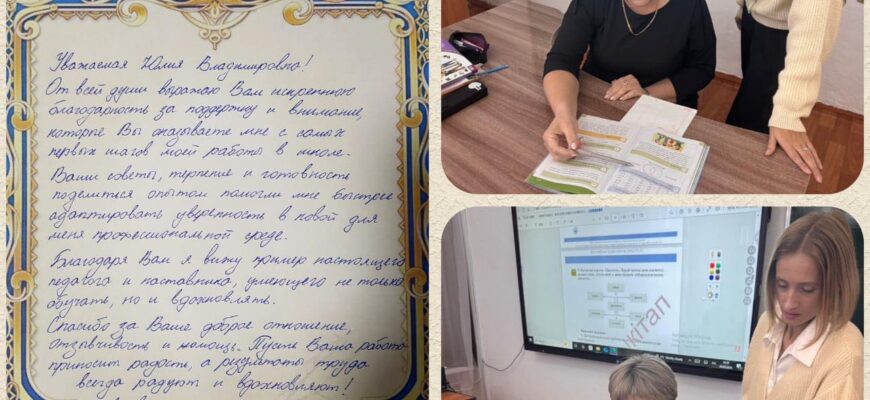 Уважаемая Юлия Владимировна!
От всей души выражаю Вам искреннюю
благодарность за поддержку и внимание,
которые Вы оказываете мне с самых
первых шагов моей работы в школе.
Ваши советы, терпение и готовность
поделиться опытом помогли мне быстрее
адаптировать уверенность в новой для
меня профессиональной среде.
Благодаря Вам я вижу пример настоящего
педагога и наставника, умеющего не только
обучать, но и вдохновлять.
Спасибо за Ваше доброе отношение,
отзывчивость и помощь. Пусть Ваша работа
приносит радость, а результаты труда
всегда радуют и вдохновляют!
кітап